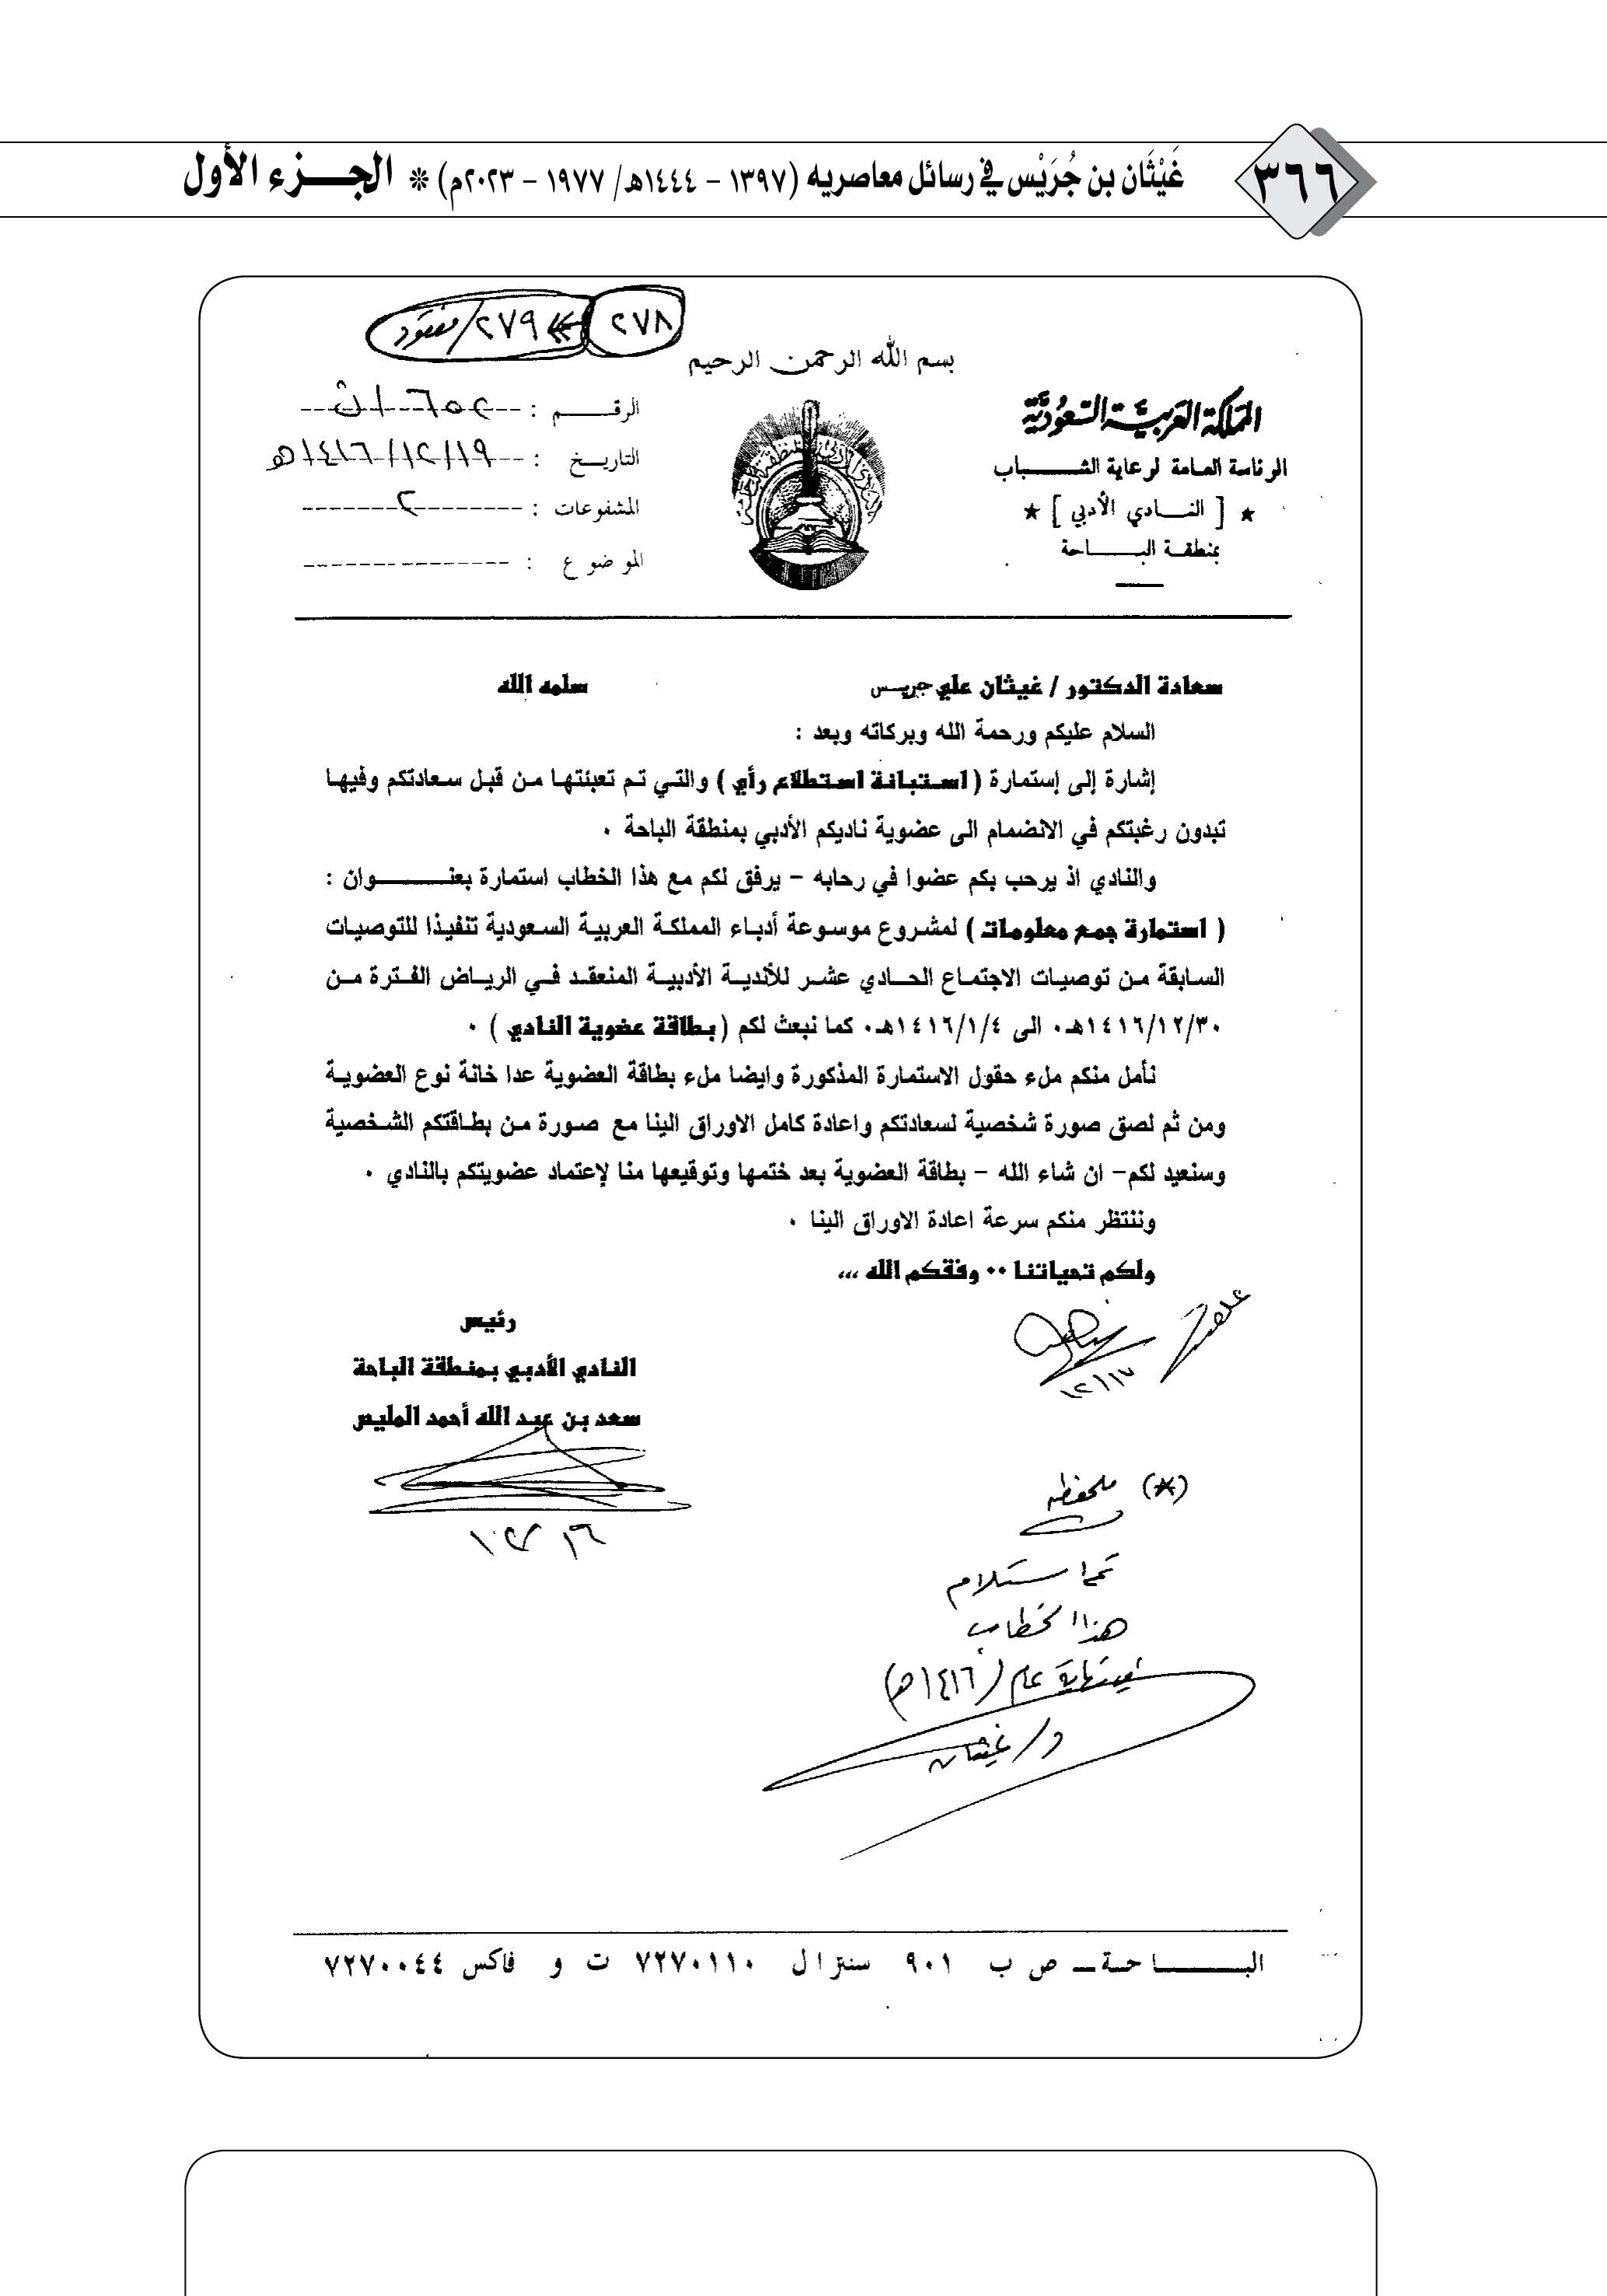 ٣٦٦
غَيْثَان بن جُرَيْس في رسائل معاصريه (١٣٩٧ - ١٤٤٤هـ/ ١٩٧٧ - ٢٠٢٣م) * الجـــزء الأول
٢٧٨
٢٧٩/مفقود
بسم الله الرحمن الرحيم
المملكة العربية السعودية
الرئاسة العامة لرعاية الشباب
★ [ النادي الأدبي ] ★
بمنطقة الباحة
الرقم :
التاريخ : ١٤١٦/١٢/١٩هـ
المشفوعات : ٢
الموضوع :
سعادة الدكتور / غيثان علي جريس سلمه الله
السلام عليكم ورحمة الله وبركاته وبعد :
إشارة إلى إستمارة ( استبانة استطلاع رأي ) والتي تم تعبئتها من قبل سعادتكم وفيها
تبدون رغبتكم في الانضمام الى عضوية ناديكم الأدبي بمنطقة الباحة ٠
والنادي اذ يرحب بكم عضوا في رحابه - يرفق لكم مع هذا الخطاب استمارة بعنـــوان :
( استمارة جمع معلومات ) لمشروع موسوعة أدباء المملكة العربية السعودية تنفيذا للتوصيات
السابقة من توصيات الاجتماع الحادي عشر للأندية الأدبية المنعقد في الرياض الفترة من
١٤١٦/١٢/٣٠هـ٠ الى ١٤١٦/١/٤هـ٠ كما نبعث لكم ( بطاقة عضوية النادي ) ٠
نأمل منكم ملء حقول الاستمارة المذكورة وايضا ملء بطاقة العضوية عدا خانة نوع العضوية
ومن ثم لصق صورة شخصية لسعادتكم واعادة كامل الاوراق الينا مع صورة من بطاقتكم الشخصية
وسنعيد لكم- ان شاء الله - بطاقة العضوية بعد ختمها وتوقيعها منا لإعتماد عضويتكم بالنادي ٠
وننتظر منكم سرعة اعادة الاوراق الينا ٠
ولكم تحياتنا ٠٠ وفقكم الله ,,,
رئيس
النادي الأدبي بمنطقة الباحة
سعد بن عبد الله أحمد المليص
١٢/١٧
(*) ملحوظه
تم استلام
هذا الخطاب
في نهاية عام (١٤١٦هـ)
د/ غيثان
البـــاحة ـ ص ب ٩٠١ سنترال ٧٢٧٠١١٠ ت و فاكس ٧٢٧٠٠٤٤